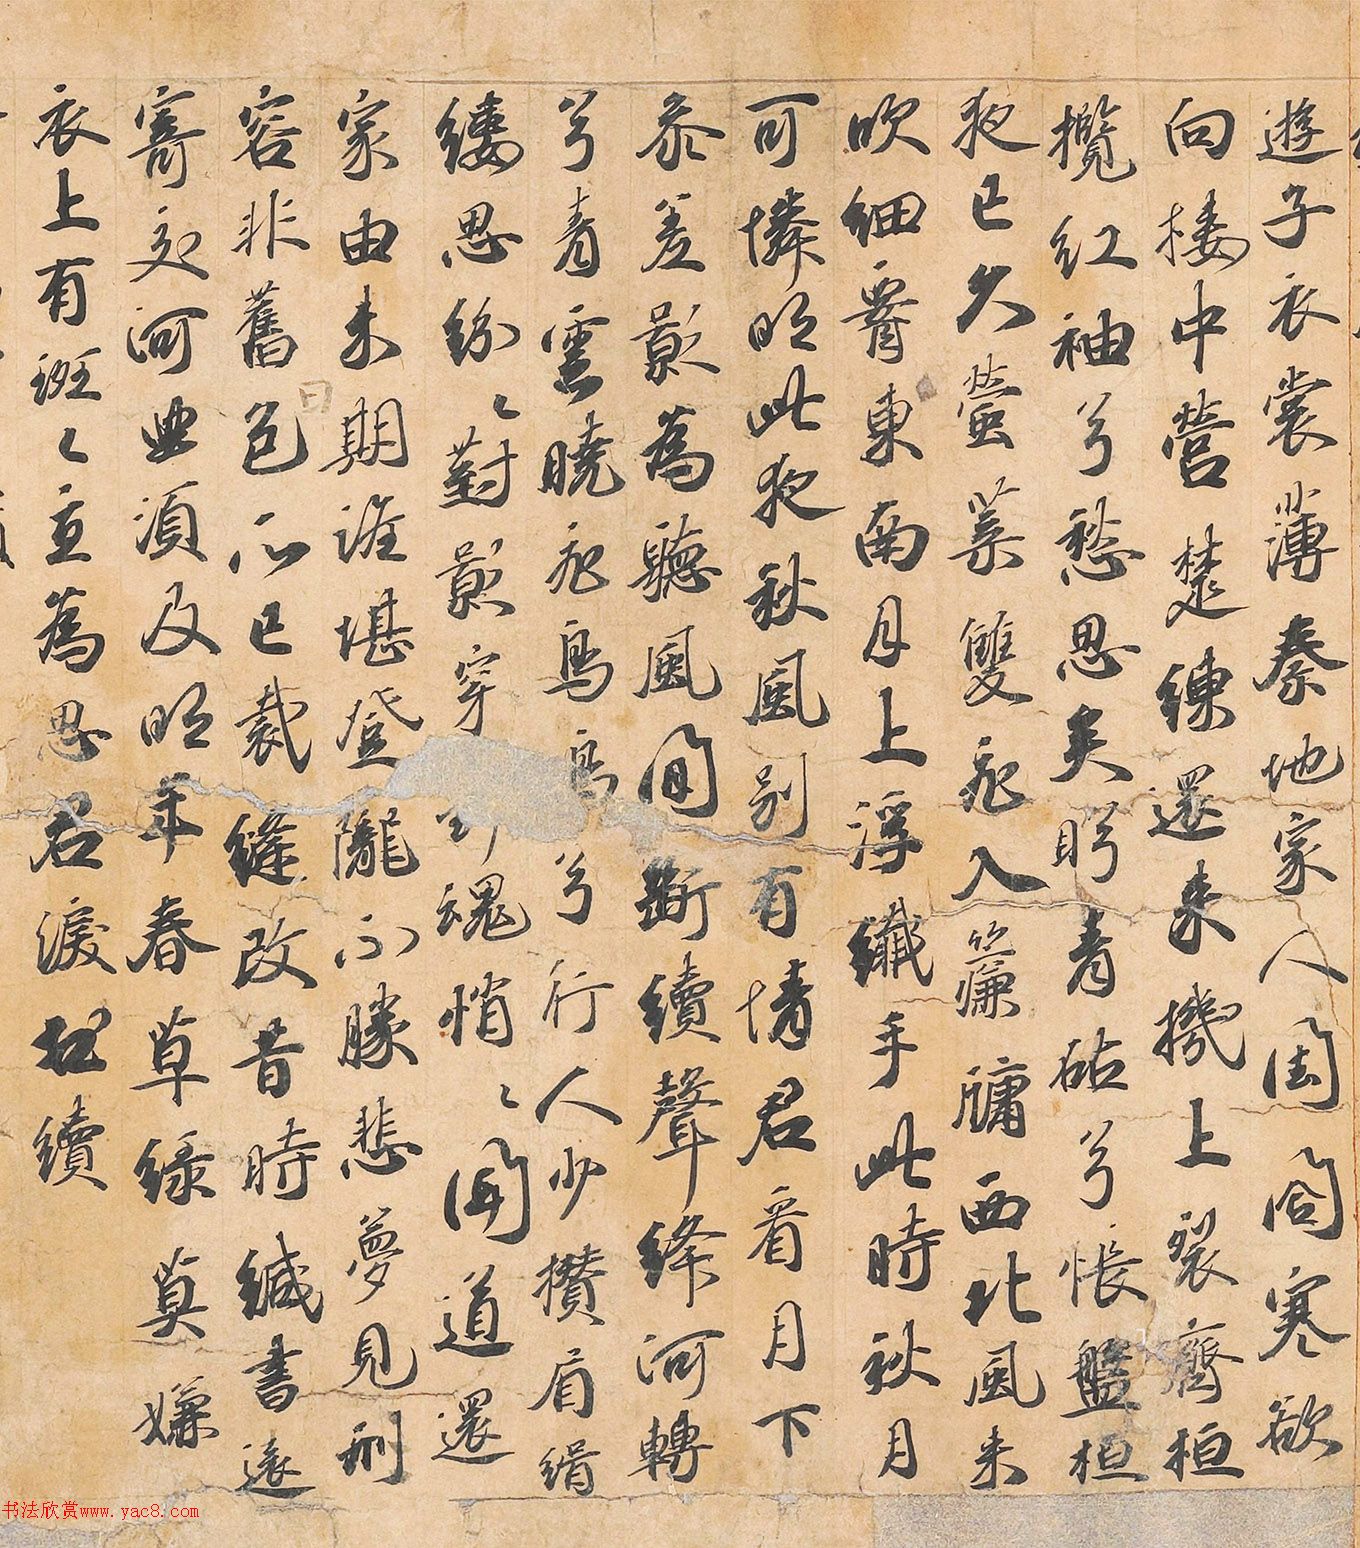 遊子衣裳薄秦地家人閨閤寒欲
向樓中縈楚練還來機上裂齊桓
攬紅袖兮愁思矣盻青砧兮悵盤桓
夜已久螢葉雙飛入簾牖西北風来
吹細腰東南月上浮纖手此時秋月
可憐明此夜秋風別有情君看月下
参差影為聽風間斷續聲絳河轉
兮青雲曉飛鳥鳥兮行人少攢眉緝
縷思紛〻對影穿魂悄〻聞道還
家由未期誰堪登隴不勝悲夢見形
容非舊色不已裁縫改昔時緘書遠
寄交河曲須及明年春草綠莫嫌
衣上有斑〻並為思君淚相續
书法欣赏www.yac8.com